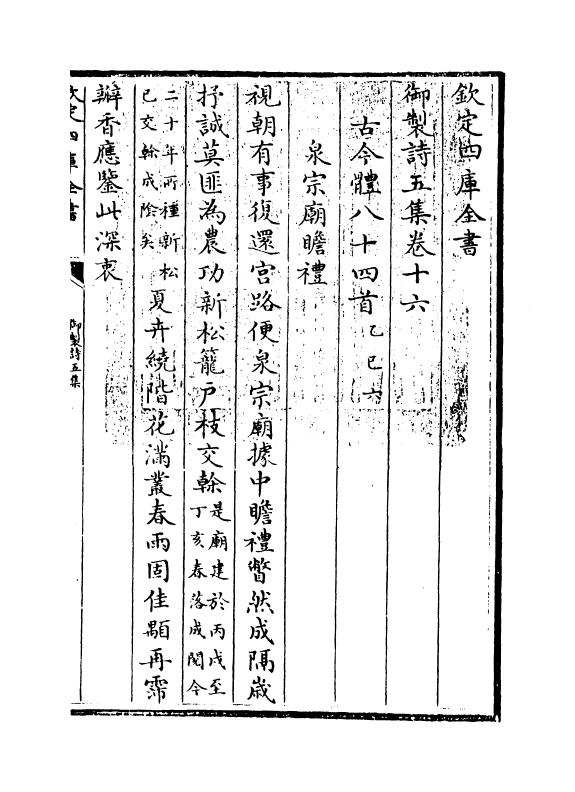 欽定四庫全書
御製詩五集卷十六
古今體八十四首乙巳六
泉宗廟瞻禮
視朝有事復還宮路便泉宗廟據中瞻禮瞥然成隔歲
抒誠莫匪為農功新松籠戶枝交榦是廟建於丙戌至丁亥春落成閱今
二十年所種新松已交榦成陰矣夏卉繞階花滿叢春雨固佳顒再霈
瓣香應鑒此深衷
欽定四庫全書
御製詩五集